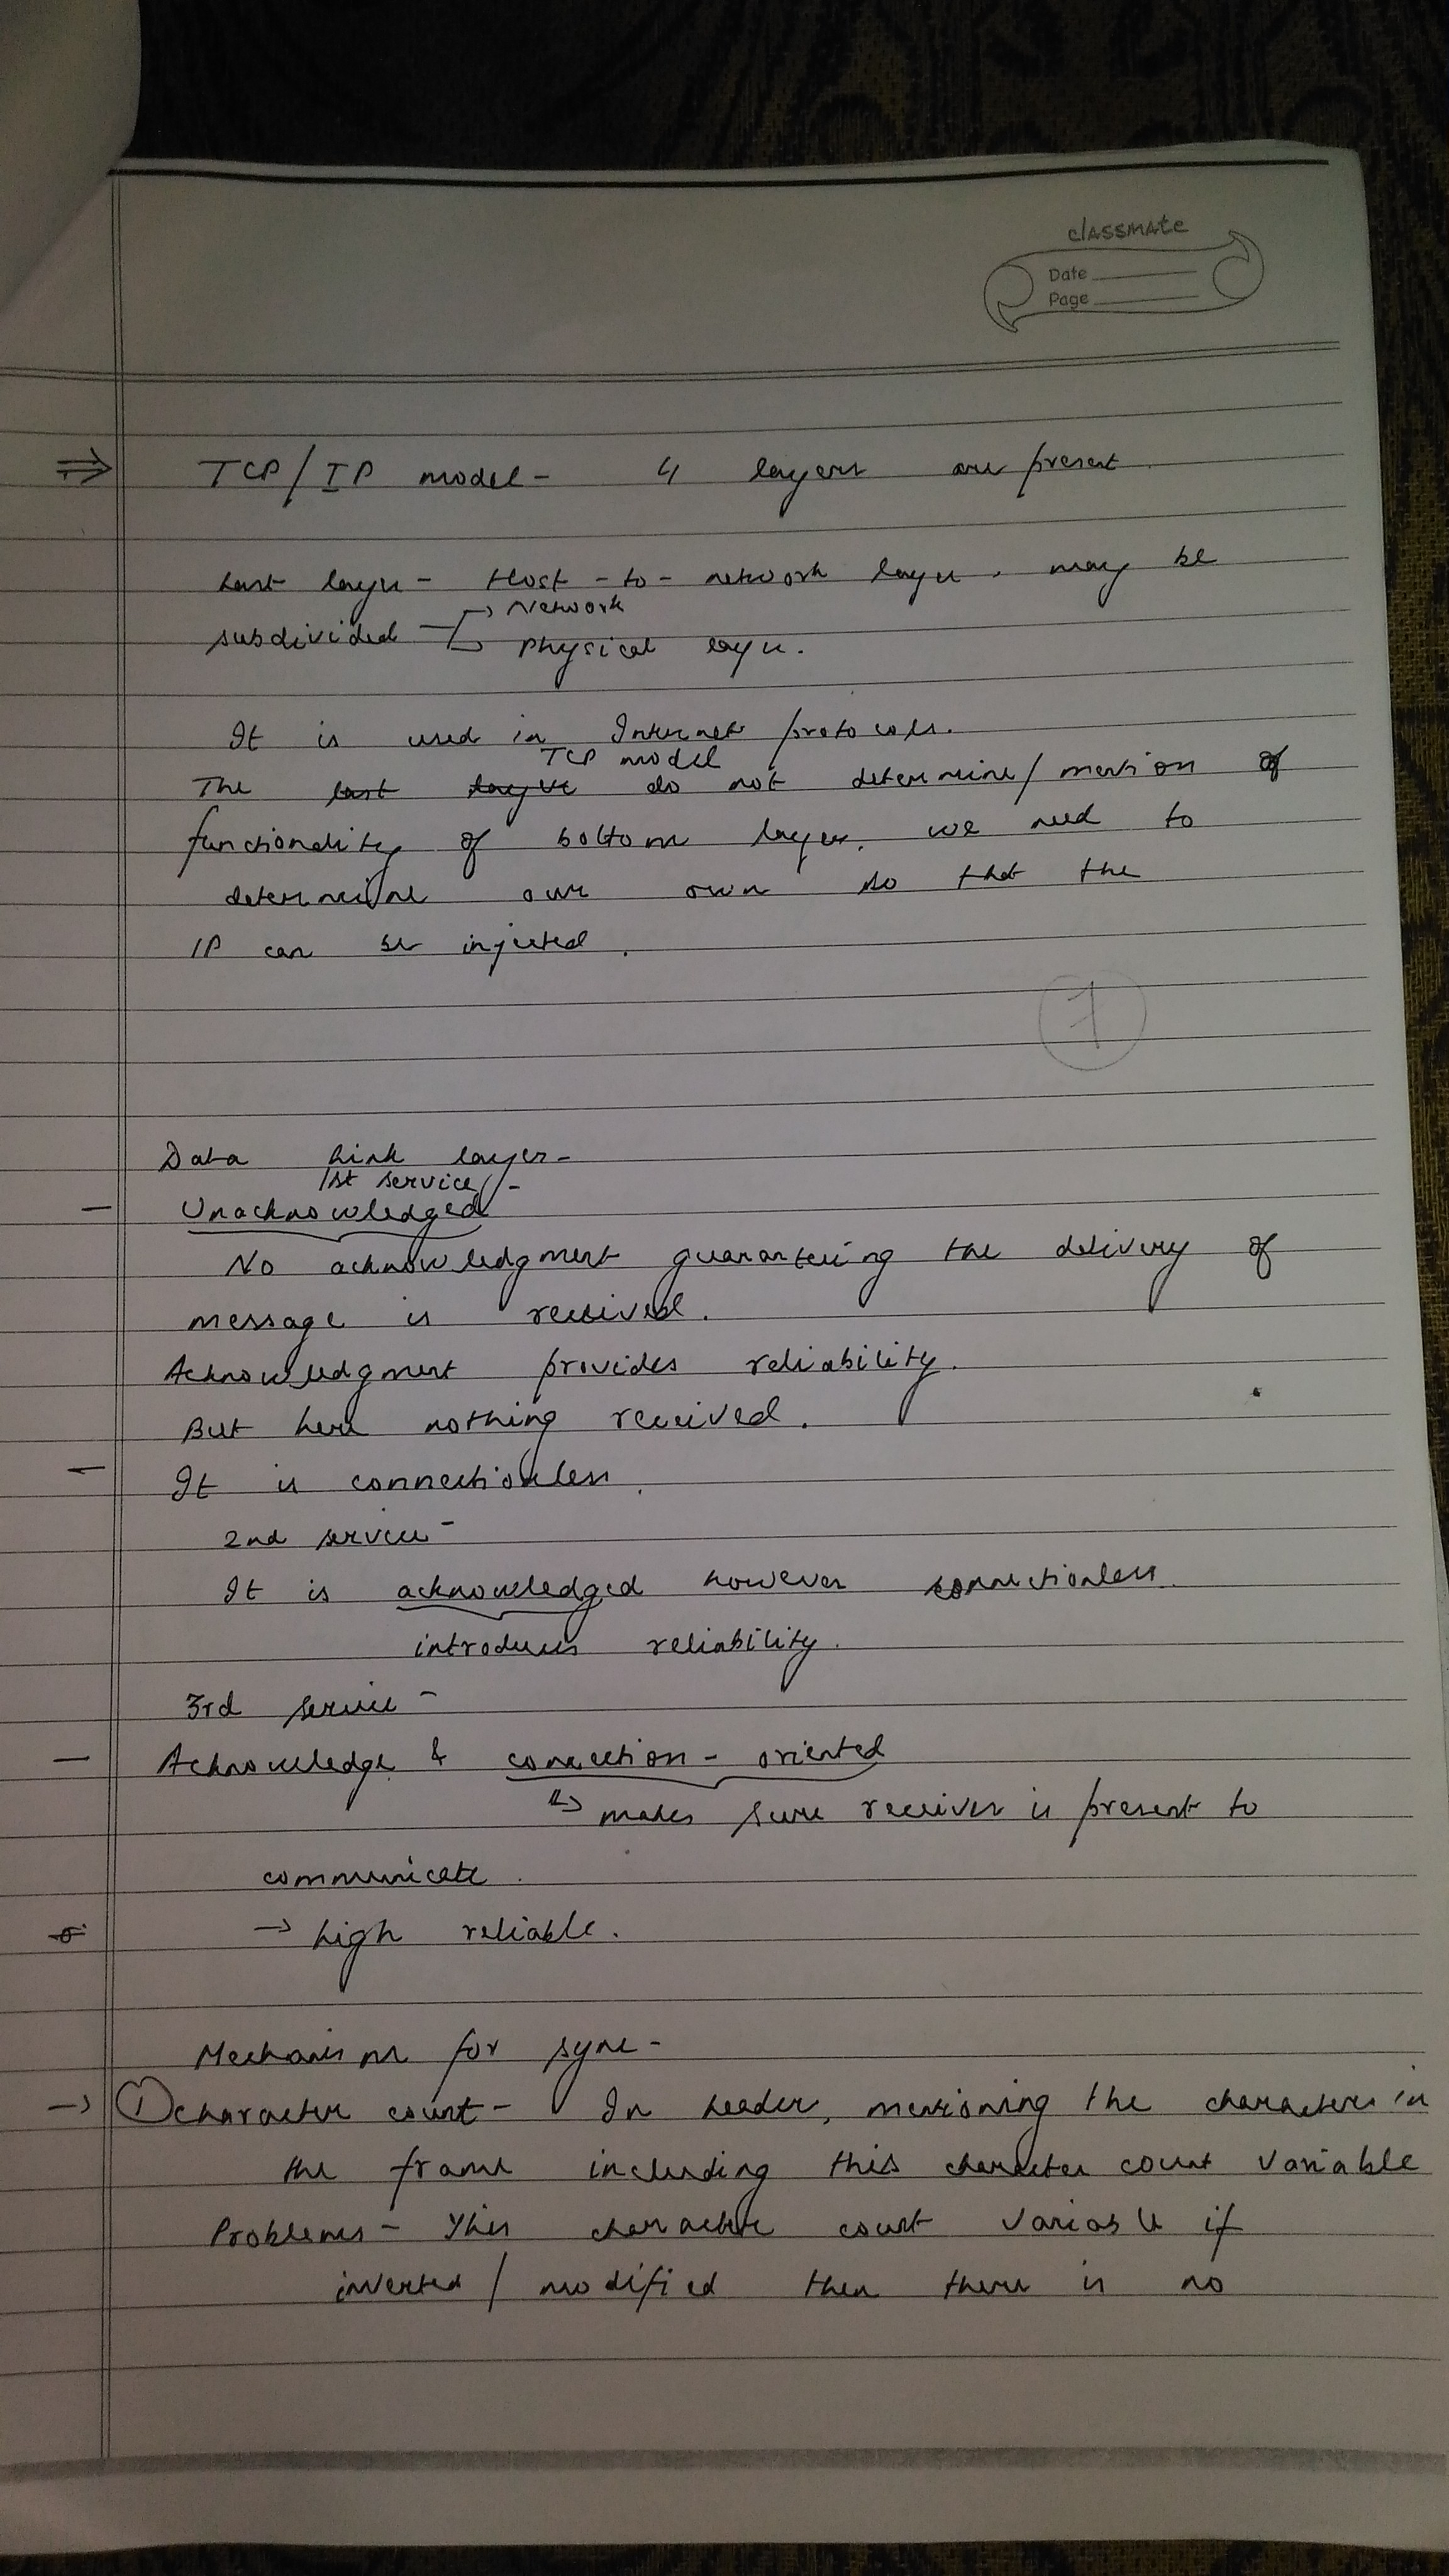 classmate
Date
Page
⇒ TCP/IP model - 4 layers are present
Last layer - Host - to - network layer. may be
→ Network
subdivided
→ Physical layer.
It is used in Internet protocols.
TCP model
The last layer do not determine/mention of
functionality of bottom layer. we need to
determine our own so that the
IP can be injected.
1
Data Link layer -
1st service -
- Unacknowledged
No acknowledgment guaranteeing the delivery of
message is received.
Acknowledgment provides reliability.
But here nothing received.
- It is connectionless.
2nd service -
It is acknowledged however connectionless.
introduces reliability.
3rd service -
- Acknowledge & connection - oriented
↳ makes sure receiver is present to
communicate.
→ high reliable.
Mechanism for sync -
→ ① character count - In header, mentioning the characters in
the frame including this character count variable
Problems - This character count variable if
inverted / modified then there is no